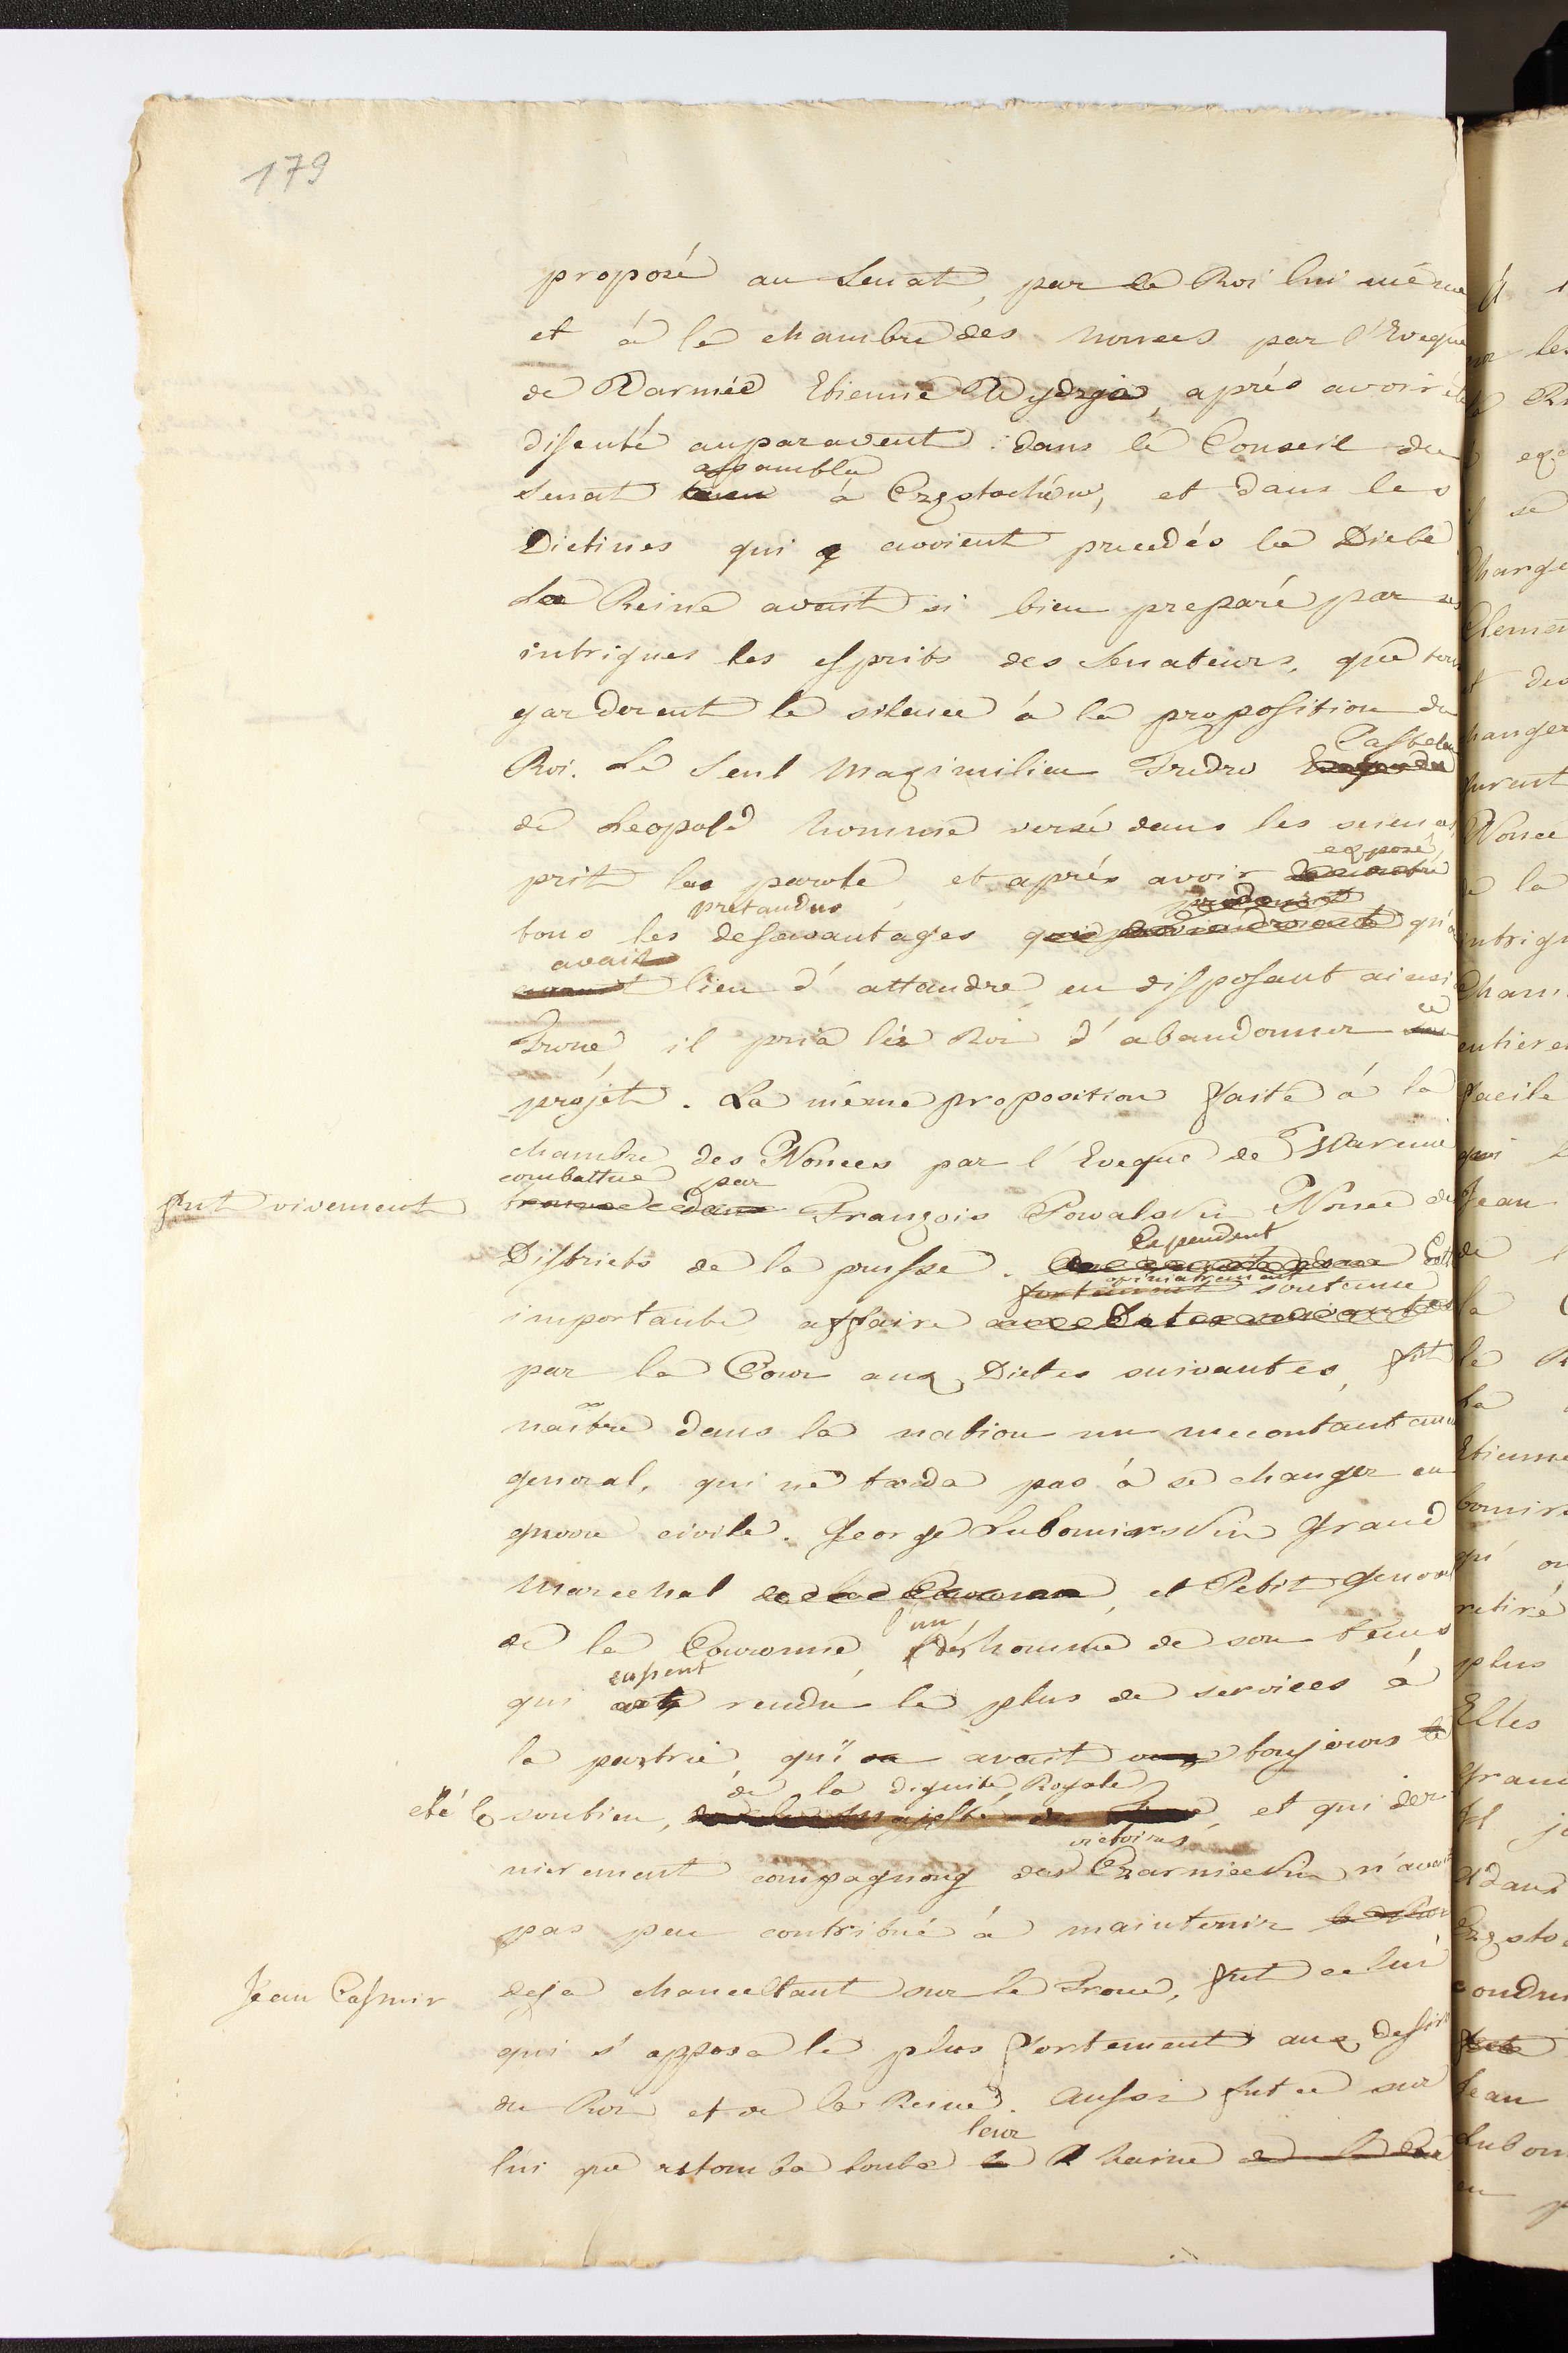 179
proposé au Senat, par le Roi lui même
et à la chambre des nonces par l'Eveque
de Warmie Etienne Wydzga, après avoir été
discuté auparavent dans le Conseil du
assemblé
Senat à Częstochow, et dans les
Dietines qui avoient precedés la Diete
La Reine avait si bien preparé par ses
intrigues les esprits des Senateurs, que tous
garderent le silence à la proposition du
Castelan
Roi. Le seul Maximilien Fredro
de Leopold homme versé dans les sciences
exposé
prit la parole et après avoir
pretandus
tous les desavantages qui proviendroient qu'on
avait
lieu d'attandre en disposant ainsi
ce
Trone, il pria le Roi d'abandonner
projèt. La même proposition faite à la
chambre des Nonces par l'Eveque de Warmie
combattue par
fut vivement trouvée dans François Powalskin Nonce des
Cependant
Districts de la prusse. Cette
fortement opiniatrement soutenue
importante affaire aux Dietes suivantes
par la Cour aux Dietes suivantes, fit
naitre dans la nation un mecontantement
general, qui ne tarda pas à se changer en
guerre civile. George Lubomirskin Grand
Marechal de la Couronne, et Petit General
l'un
de la Couronne, des homme de son tems
eupent
qui rendu le plus de services à
la partrie, qui avait toujours
de la dignité Royale
eté le soutien, de la Majesté du Trone, et qui der
victoires
nierement compagnong des Czarnieckin n'avait
pas peu contribué à maintenir
Jean Casmir deja chancellant sur le Trone, fut celui
qui s'opposa le plus fortement aux dessins
du Roi et de la Reine. Aussi fut ce sur
leur
lui que retomba toute la haine